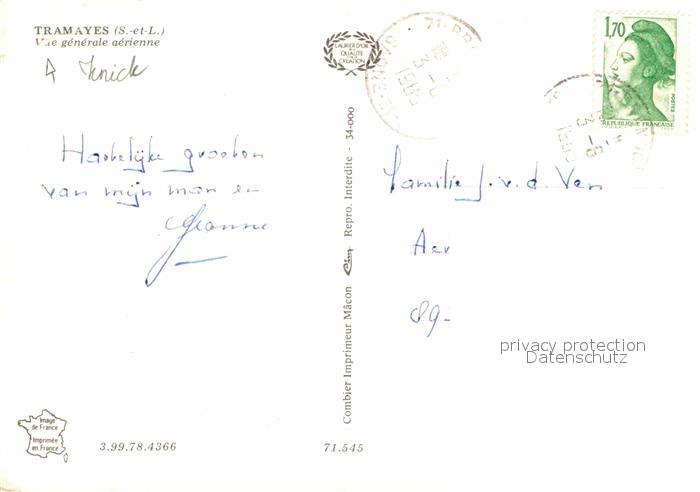 TRAMAYES (S.-et-L.)
Vue générale aérienne
A Knick
LAURIER D'OR
DE LA
QUALITÉ
DE LA
CRÉATION
1,70
POSTES
REPUBLIQUE FRANÇAISE
Hartelijke groeten
van mijn man en
Jeanne
Familie J. v. d. Ven
Aer
89-
privacy protection
Datenschutz
Combier Imprimeur Mâcon Cim Repro. Interdite - 34-000
Image
de France
Imprimée
en France
3.99.78.4366
71.545